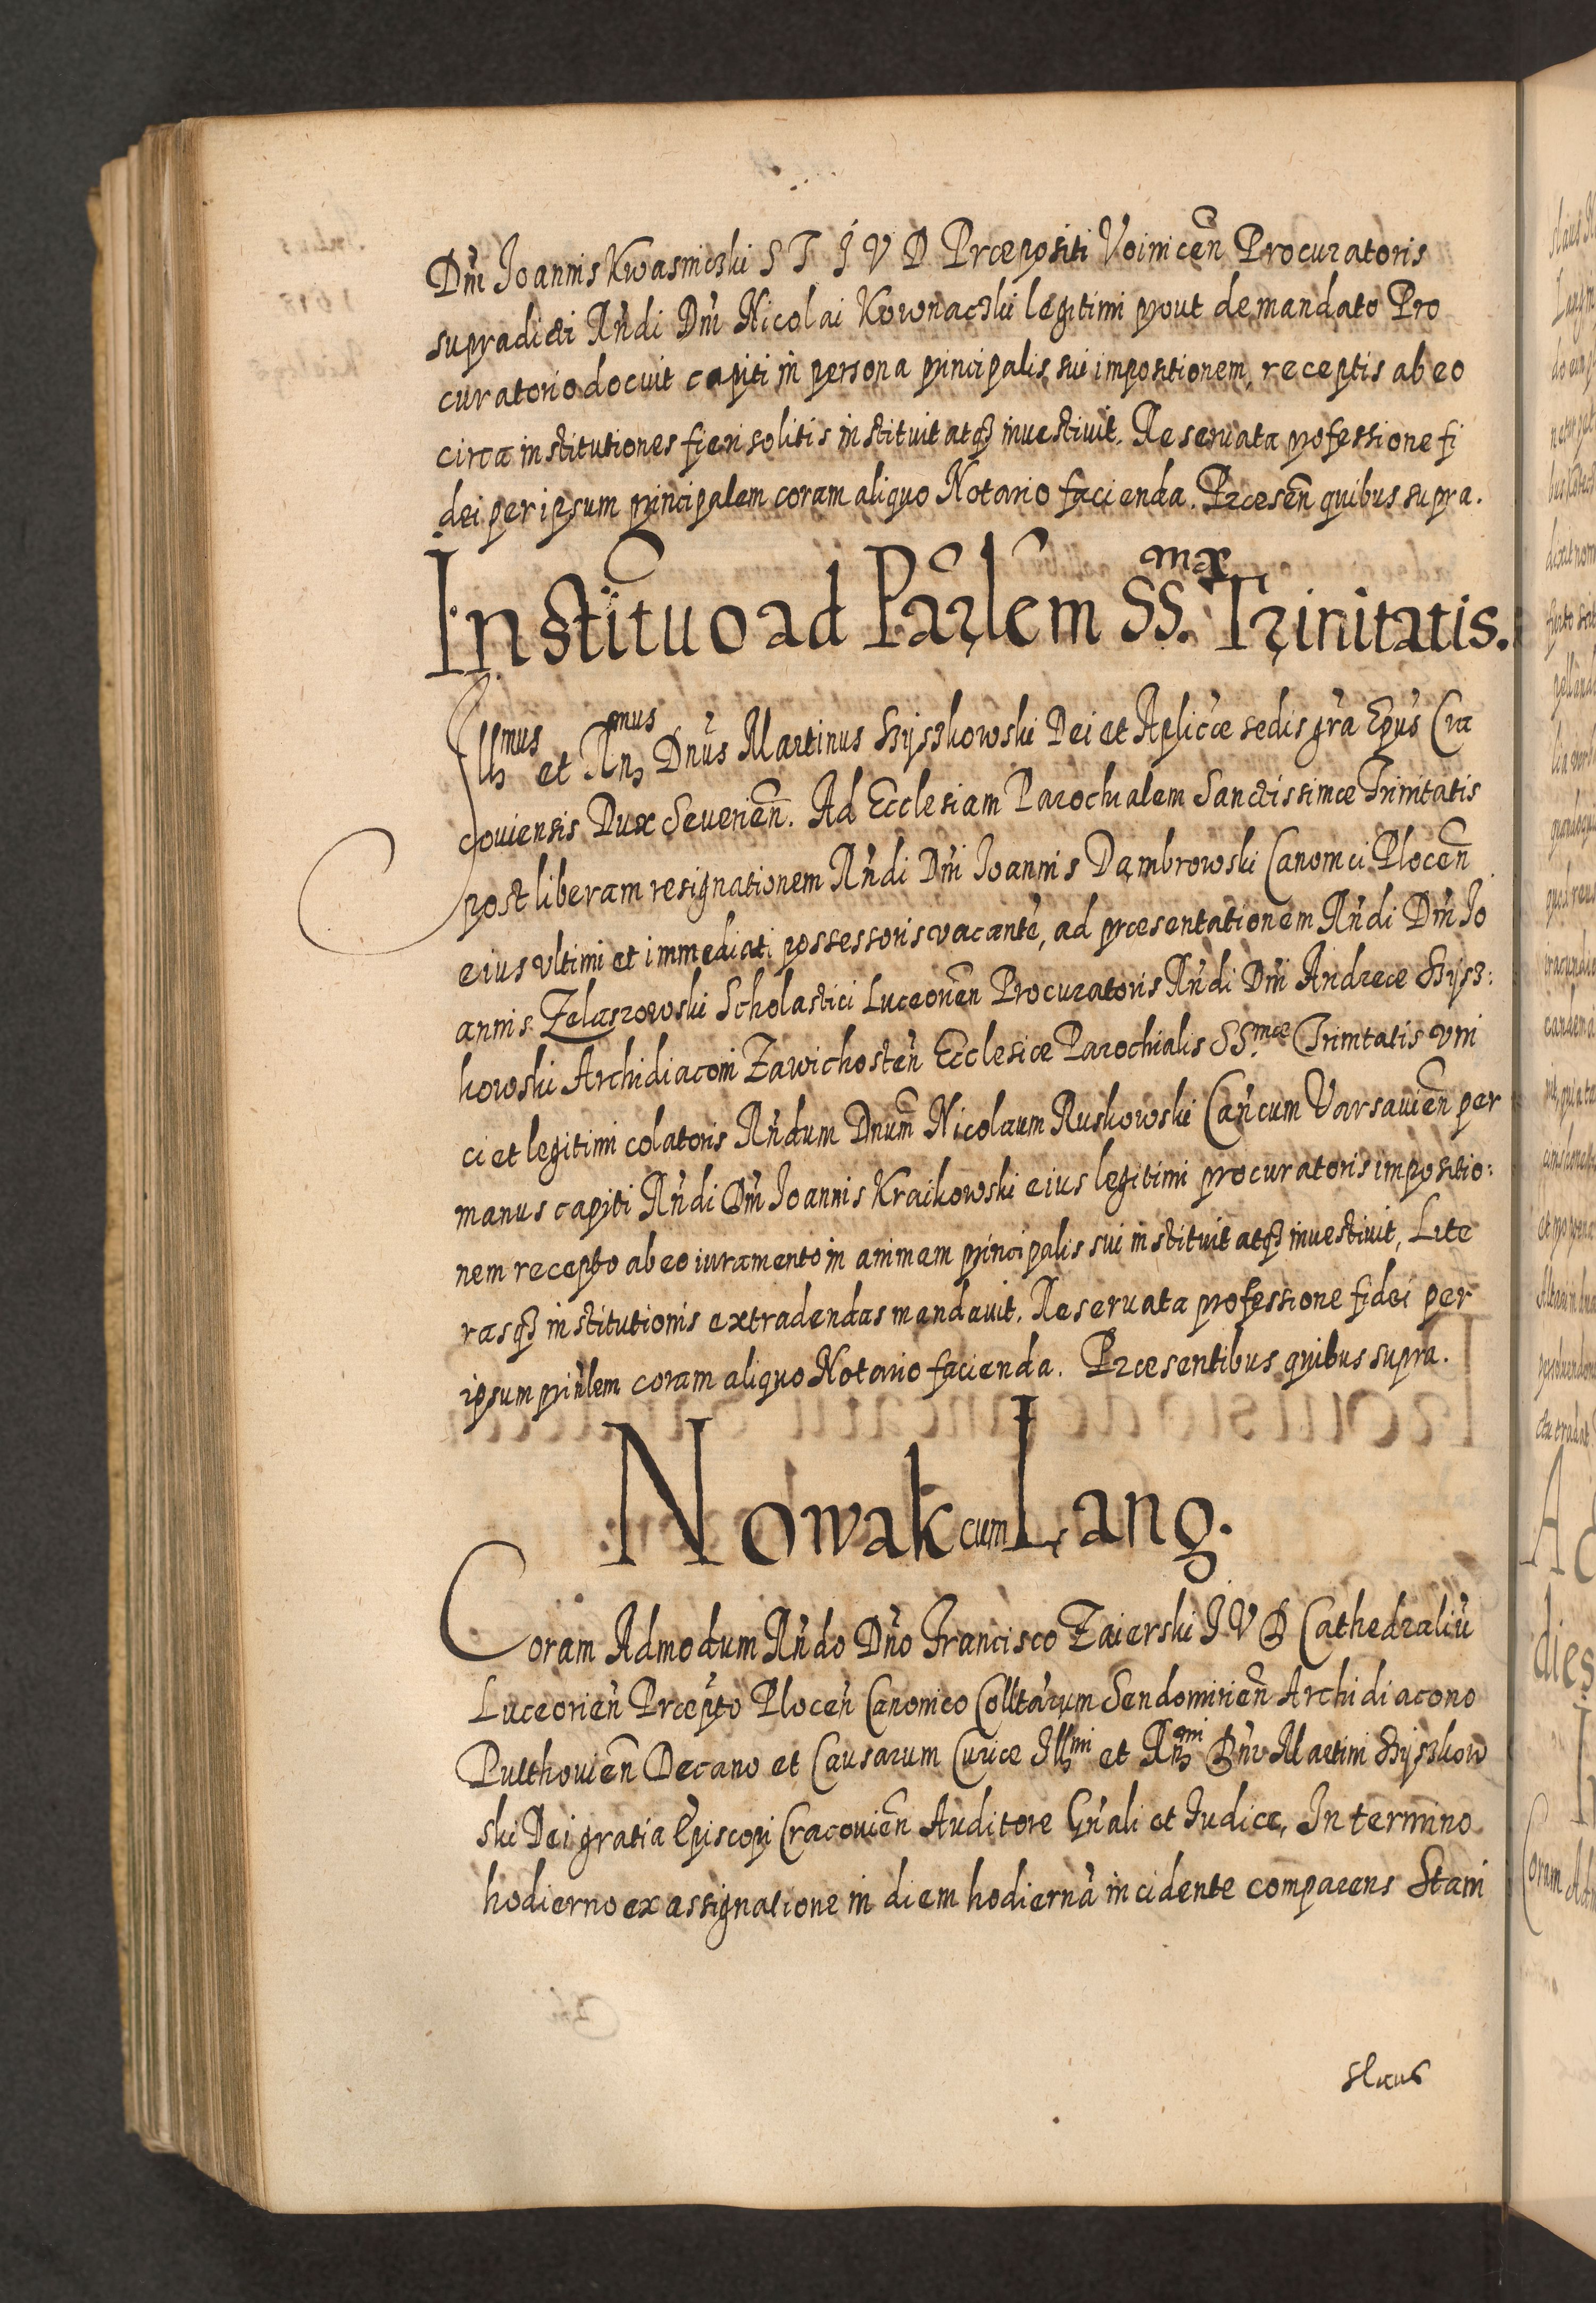 Dni Joannis Kwasniczki S T J V D Præpositi Voinicen Procuratoris
supradicti Rndi Dni Nicolai Kownaczki legitimi prout de mandato Pro
curatorio docuit capiti in persona principalis sui impositionem, receptis ab eo
circa institutiones fieri solitis instituit atq3 inuestiuit. Reseruata professione fi
dei per ipsum principalem coram aliquo Notario facienda. Præsen quibus supra.
Institutio ad Parlem SS. mæ Trinitatis.
Illmus et Rnmus Dnus Martinus Szyszkowski Dei et Aplicæ sedis gra Epus Cra
couiensis Dux Seuerien. Ad Ecclesiam Parochialem Sanctissimæ Trinitatis
post liberam resignationem Rndi Dni Joannis Dąmbrowski Canonici Plocen
eius vltimi et immediati possessoris vacante, ad præsentationem Rndi Dni Jo
annis Zelaszowski Scholastici Luceorien Procuratoris Rndi Dni Andreæ Szysz:
kowski Archidiaconi Zawichosten Ecclesiæ Parochialis SS.mæ Trinitatis vni
ci et legitimi colatoris Rndum Dnum Nicolaum Ruskowski Cancum Varsauien per
manus capiti Rndi Dni Joannis Kraikowski eius legitimi procuratoris impositio:
nem recepto ab eo iuramento in animam principalis sui instituit atq3 inuestiuit, Lite
rasq3 institutionis extradendas mandauit. Reseruata professione fidei per
ipsum prinlem coram aliquo Notario facienda. Præsentibus quibus supra.
Nowak cum Lang.
Coram Admodum Rndo Dno Francisco Zaierski J V D Cathedraliu
Luceorien Præpto Plocen Canonico Colltarum Sendomirien Archidiacono
Pulthouien Decano et Causarum Curiæ Illmi et Rnmi Dni Martini Szyszkow
ski Dei gratia Episcopi Cracouien Auditore Gnali et Iudice, In termino
hodierno ex assignatione in diem hodierna incidente comparens Stani
slaus